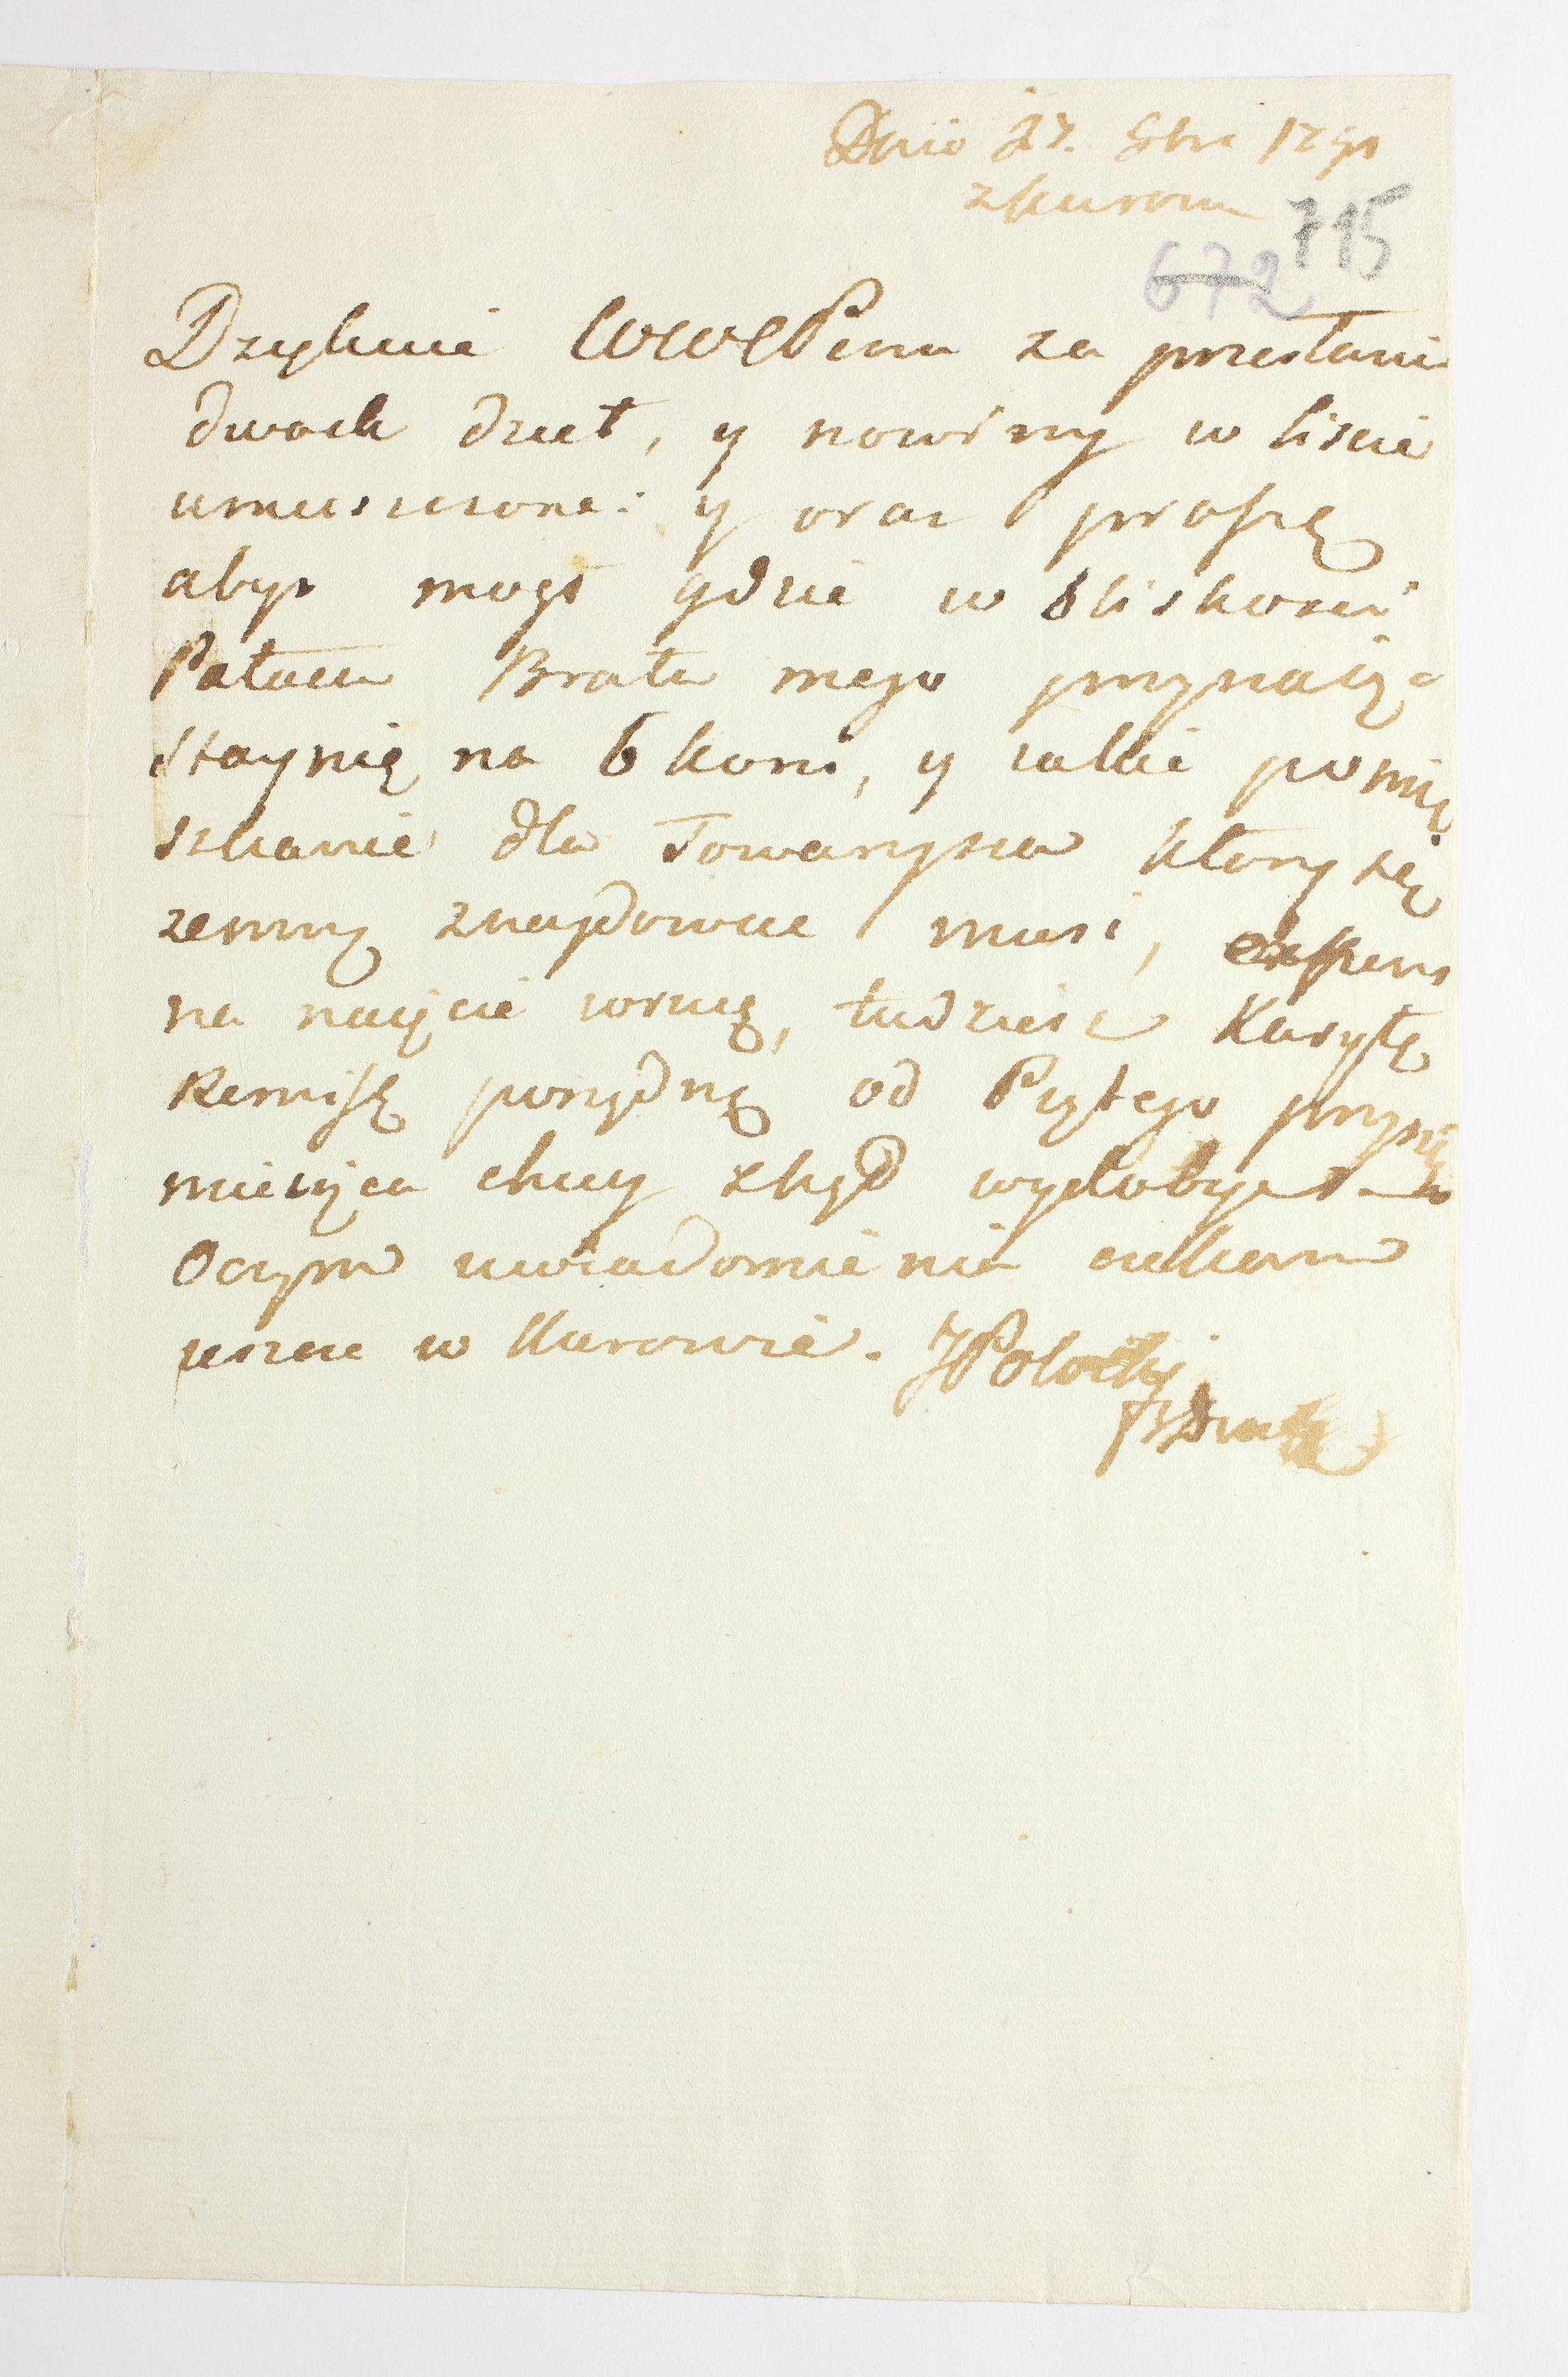 Dnia 27. 8bra 1791
z kurowa
715
672
Dzyękuie WWPanu za przesłanie
dwoch dzieł, y nowiny w liscie
umieszczone: y oraz proszę
abys mogł gdzie w bliskosci
Pałacu Brata mego przynaiąc
staynią na 6 koni, y takie pomię
szkanie dla Towarzysza ktory się
zemną znaydowac musi, expens
na naięcie wrucę, tudziesz Karytę
Remisę porządną od Piątego przyszłego
miesiąca chcey zkąd wydobyc
Oczym uwiadomienia czekam
ieszcze w Kurowie. JPotocki